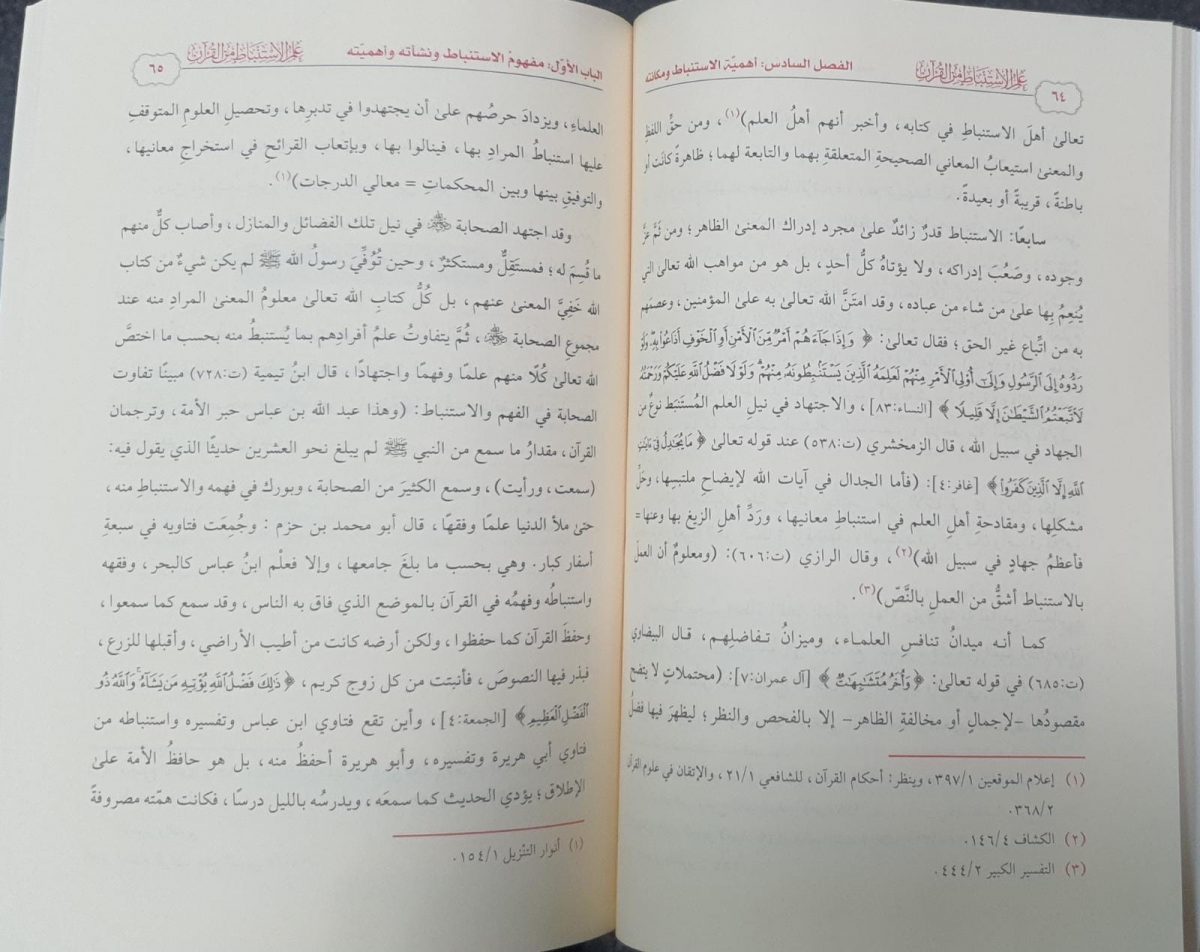 علم الاستنباط من القرآن
الفصل السادس: أهميّة الاستنباط ومكانته
٦٤
تعالىٰ أهلَ الاستنباطِ في كتابه، وأخبر أنهم أهلُ العلم)(١)، ومن حقِّ اللفظِ
والمعنىٰ استيعابُ المعاني الصحيحةِ المتعلقةِ بهما والتابعة لهما؛ ظاهرةً كانَت أو
باطنةً، قريبةً أو بعيدةً.
سابعًا: الاستنباط قدرٌ زائدٌ علىٰ مجرد إدراك المعنىٰ الظاهر؛ ومن ثَمَّ عزَّ
وجوده، وصَعُبَ إدراكه، ولا يؤتاهُ كلُّ أحدٍ، بل هو من مواهب الله تعالىٰ التي
يُنعِمُ بِها علىٰ من شاء من عباده، وقد امتَنَّ الله تعالىٰ به علىٰ المؤمنين، وعصمَهم
به من اتِّباع غير الحق؛ فقال تعالىٰ: ﴿ وَإِذَا جَآءَهُمْ أَمْرٌ مِّنَ ٱلْأَمْنِ أَوِ ٱلْخَوْفِ أَذَاعُوا۟ بِهِۦ ۖ وَلَوْ
رَدُّوهُ إِلَى ٱلرَّسُولِ وَإِلَىٰٓ أُو۟لِى ٱلْأَمْرِ مِنْهُمْ لَعَلِمَهُ ٱلَّذِينَ يَسْتَنۢبِطُونَهُۥ مِنْهُمْ ۗ وَلَوْلَا فَضْلُ ٱللَّهِ عَلَيْكُمْ وَرَحْمَتُهُۥ
لَٱتَّبَعْتُمُ ٱلشَّيْطَٰنَ إِلَّا قَلِيلًا ﴾ [النساء:٨٣]، والاجتهاد في نيلِ العلم المُستَنبَط نوعٌ من
الجهاد في سبيل الله، قال الزمخشري (ت:٥٣٨) عند قوله تعالىٰ ﴿ مَا يُجَٰدِلُ فِىٓ ءَايَٰتِ
ٱللَّهِ إِلَّا ٱلَّذِينَ كَفَرُوا۟ ﴾ [غافر:٤]: (فأما الجدال في آيات الله لإيضاحِ ملتبِسِها، وحَلِّ
مشكلِها، ومقادحةِ أهلِ العلم في استنباطِ معانيها، ورَدِّ أهلِ الزيغِ بها وعنها=
فأعظمُ جهادٍ في سبيل الله)(٢)، وقال الرازي (ت:٦٠٦): (ومعلومٌ أن العملَ
بالاستنباط أشقُّ من العملِ بالنَّصّ)(٣).
كما أنه ميدانُ تنافسِ العلماء، وميزانُ تفاضلِهم، قال البيضاوي
(ت:٦٨٥) في قوله تعالىٰ: ﴿ وَأُخَرُ مُتَشَٰبِهَٰتٌ ﴾ [آل عمران:٧]: (محتملاتٍ لا يتضح
مقصودُها –لإجمالٍ أو مخالفةِ الظاهر– إلا بالفحص والنظر؛ ليظهرَ فيها فضلُ
(١) إعلام الموقعين ٣٩٧/١، وينظر: أحكام القرآن، للشافعي ٢١/١، والإتقان في علوم القرآن
٣٦٨/٢.
(٢) الكشاف ١٤٦/٤.
(٣) التفسير الكبير ٤٤٤/٢.
الباب الأوّل: مفهومُ الاستنباط ونشأته وأهميّته
علم الاستنباط من القرآن
٦٥
العلماءِ، ويزدادَ حرصُهم علىٰ أن يجتهدوا في تدبرِها، وتحصيلِ العلومِ المتوقفِ
عليها استنباطُ المرادِ بها، فينالوا بها، وبإتعاب القرائحِ في استخراج معانيها،
والتوفيقِ بينها وبين المحكماتِ = معالي الدرجات)(١).
وقد اجتهد الصحابة ﵃ في نيل تلك الفضائل والمنازل، وأصاب كلٌّ منهم
ما قُسِمَ له؛ فمستَقِلٌّ ومستكثرٌ، وحين تُوُفِّيَ رسولُ الله ﷺ لم يكن شيءٌ من كتاب
الله خَفِيَّ المعنىٰ عنهم، بل كُلُّ كتابِ الله تعالىٰ معلومُ المعنىٰ المرادِ منه عند
مجموعِ الصحابة ﵃، ثُمَّ يتفاوتُ علمُ أفرادِهم بما يُستنبطُ منه بحسب ما اختصَّ
الله تعالىٰ كُلًا منهم علمًا وفهمًا واجتهادًا، قال ابنُ تيمية (ت:٧٢٨) مبينًا تفاوت
الصحابة في الفهم والاستنباط: (وهذا عبد الله بن عباس حبر الأمة، وترجمان
القرآن، مقدارُ ما سمع من النبي ﷺ لم يبلغ نحو العشرين حديثًا الذي يقول فيه:
(سمعت، ورأيت)، وسمع الكثيرَ من الصحابة، وبورك في فهمه والاستنباطِ منه،
حتىٰ ملأ الدنيا علمًا وفقهًا، قال أبو محمد بن حزم: وجُمِعَت فتاويه في سبعةِ
أسفار كبار. وهي بحسب ما بلغَ جامعها، وإلا فعلْم ابنُ عباس كالبحر، وفقهه
واستنباطُه وفهمُه في القرآن بالموضع الذي فاق به الناس، وقد سمع كما سمعوا،
وحفظَ القرآن كما حفظوا، ولكن أرضه كانت من أطيب الأراضي، وأقبلها للزرع،
فبذر فيها النصوصَ، فأنبتت من كل زوج كريم، ﴿ ذَٰلِكَ فَضْلُ ٱللَّهِ يُؤْتِيهِ مَن يَشَآءُ ۚ وَٱللَّهُ ذُو
ٱلْفَضْلِ ٱلْعَظِيمِ ﴾ [الجمعة:٤]، وأين تقع فتاوي ابن عباس وتفسيره واستنباطه من
فتاوي أبي هريرة وتفسيره، وأبو هريرة أحفظُ منه، بل هو حافظُ الأمة علىٰ
الإطلاق؛ يؤدي الحديث كما سمعَه، ويدرسُه بالليل درسًا، فكانت همّته مصروفةً
(١) أنوار التنْزيل ١٥٤/١.